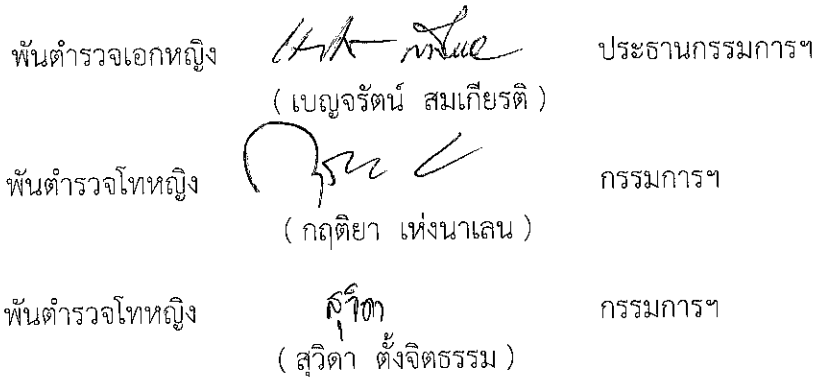 พันตำรวจเอกหญิง ประธานกรรมการฯ
( เบญจรัตน์ สมเกียรติ )
พันตำรวจโทหญิง กรรมการฯ
( กฤติยา เห่งนาเลน )
พันตำรวจโทหญิง สุวิดา กรรมการฯ
( สุวิดา ตั้งจิตธรรม )